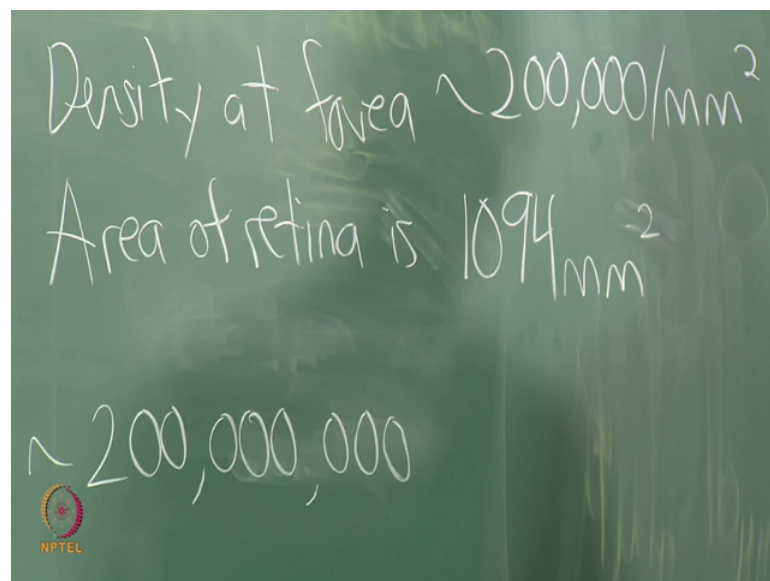 Density at fovea ~200,000/mm²
Area of retina is 1094 mm²
~200,000,000
NPTEL